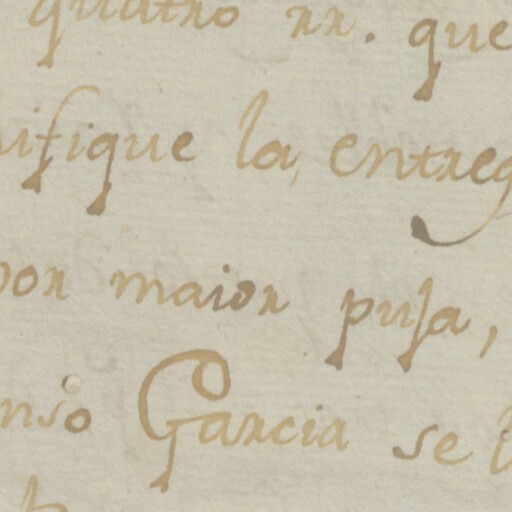 quatro rr. que
ifique la entreg
por maior puja,
nso Garcia se